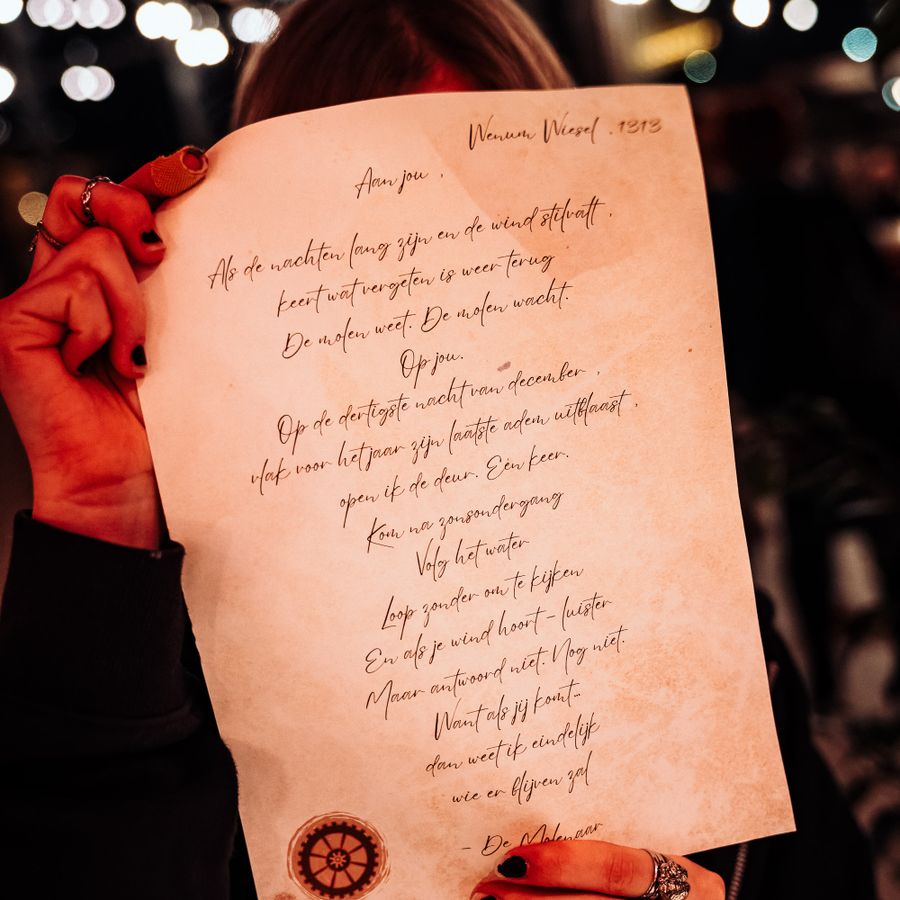 Wenum Wiesel . 1313
Aan jou ,
Als de nachten lang zijn en de wind stilvalt ,
keert wat vergeten is weer terug
De molen weet. De molen wacht.
Op jou.
Op de dertigste nacht van december ,
vlak voor het jaar zijn laatste adem uitblaast ,
open ik de deur. Eén keer.
Kom na zonsondergang
Volg het water
Loop zonder om te kijken
En als je wind hoort – luister
Maar antwoord niet. Nog niet.
Want als jij komt...
dan weet ik eindelijk
wie er blijven zal
- De Molenaar